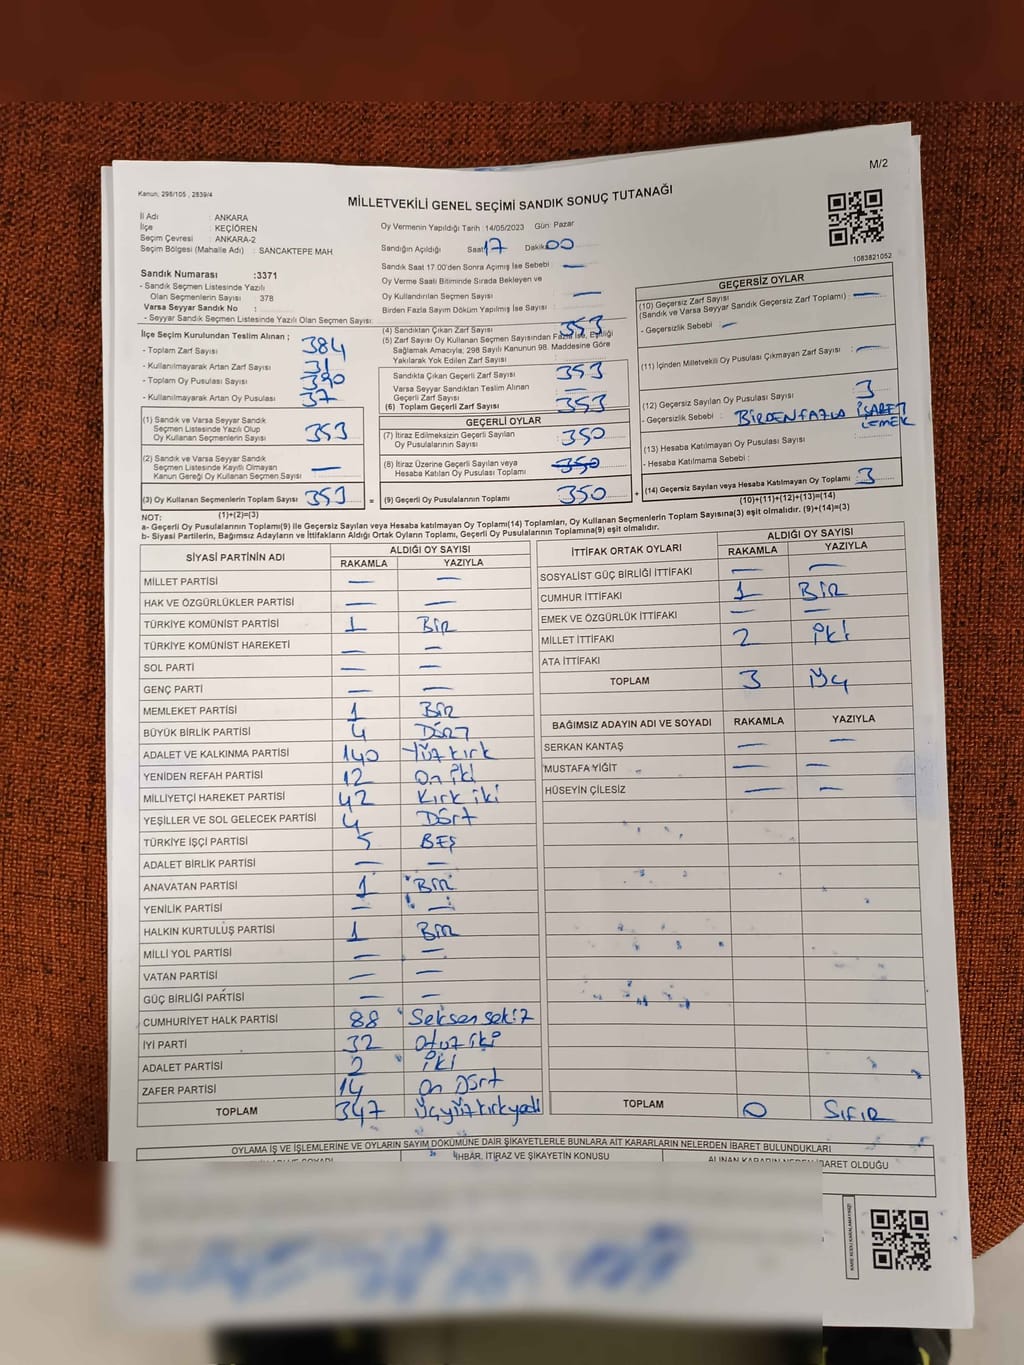 M/2
Kanun, 298/105 , 2839/4
MİLLETVEKİLİ GENEL SEÇİMİ SANDIK SONUÇ TUTANAĞI
İl Adı : ANKARA
İlçe : KEÇİÖREN
Seçim Çevresi : ANKARA-2
Seçim Bölgesi (Mahalle Adı) : SANCAKTEPE MAH
Sandık Numarası :3371
- Sandık Seçmen Listesinde Yazılı
Olan Seçmenlerin Sayısı : 378
Varsa Seyyar Sandık No :
- Seyyar Sandık Seçmen Listesinde Yazılı Olan Seçmen Sayısı:
Oy Vermenin Yapıldığı Tarih :14/05/2023 Gün: Pazar
Sandığın Açıldığı Saat 17 Dakika 00
Sandık Saat 17.00'den Sonra Açımış İse Sebebi : —
Oy Verme Saati Bitiminde Sırada Bekleyen ve
Oy Kullandırılan Seçmen Sayısı : —
Birden Fazla Sayım Döküm Yapılmış İse Sayısı :
1083821052
İlçe Seçim Kurulundan Teslim Alınan ;
- Toplam Zarf Sayısı : 384
- Kullanılmayarak Artan Zarf Sayısı : 31
- Toplam Oy Pusulası Sayısı : 390
- Kullanılmayarak Artan Oy Pusulası : 37
(1) Sandık ve Varsa Seyyar Sandık
Seçmen Listesinde Yazılı Olup
Oy Kullanan Seçmenlerin Sayısı : 353
(2) Sandık ve Varsa Seyyar Sandık
Seçmen Listesinde Kayıtlı Olmayan
Kanun Gereği Oy Kullanan Seçmen Sayısı : —
(3) Oy Kullanan Seçmenlerin Toplam Sayısı : 353 =
(1)+(2)=(3)
(4) Sandıktan Çıkan Zarf Sayısı : 353
(5) Zarf Sayısı Oy Kullanan Seçmen Sayısından Fazla İse, Eşitliği
Sağlamak Amacıyla; 298 Sayılı Kanunun 98. Maddesine Göre
Yakılarak Yok Edilen Zarf Sayısı :
Sandıkta Çıkan Geçerli Zarf Sayısı : 353
Varsa Seyyar Sandıktan Teslim Alınan
Geçerli Zarf Sayısı : —
(6) Toplam Geçerli Zarf Sayısı : 353
GEÇERLİ OYLAR
(7) İtiraz Edilmeksizin Geçerli Sayılan
Oy Pusulalarının Sayısı : 350
(8) İtiraz Üzerine Geçerli Sayılan veya
Hesaba Katılan Oy Pusulası Toplamı : 350
(9) Geçerli Oy Pusulalarının Toplamı : 350 +
GEÇERSİZ OYLAR
(10) Geçersiz Zarf Sayısı
(Sandık ve Varsa Seyyar Sandık Geçersiz Zarf Toplamı) : —
- Geçersizlik Sebebi : —
(11) İçinden Milletvekili Oy Pusulası Çıkmayan Zarf Sayısı : —
(12) Geçersiz Sayılan Oy Pusulası Sayısı : 3
- Geçersizlik Sebebi : BİRDEN FAZLA İŞARET
LEMEK
(13) Hesaba Katılmayan Oy Pusulası Sayısı :
- Hesaba Katılmama Sebebi :
(14) Geçersiz Sayılan veya Hesaba Katılmayan Oy Toplamı : 3
(10)+(11)+(12)+(13)=(14)
NOT:
a- Geçerli Oy Pusulalarının Toplamı(9) ile Geçersiz Sayılan veya Hesaba katılmayan Oy Toplamı(14) Toplamları, Oy Kullanan Seçmenlerin Toplam Sayısına(3) eşit olmalıdır. (9)+(14)=(3)
b- Siyasi Partilerin, Bağımsız Adayların ve İttifakların Aldığı Oyların Toplamı, Geçerli Oy Pusulalarının Toplamına(9) eşit olmalıdır.
SİYASİ PARTİNİN ADI ALDIĞI OY SAYISI
RAKAMLA YAZIYLA
MİLLET PARTİSİ — —
HAK VE ÖZGÜRLÜKLER PARTİSİ — —
TÜRKİYE KOMÜNİST PARTİSİ 1 BİR
TÜRKİYE KOMÜNİST HAREKETİ — —
SOL PARTİ — —
GENÇ PARTİ — —
MEMLEKET PARTİSİ 1 BİR
BÜYÜK BİRLİK PARTİSİ 4 DÖRT
ADALET VE KALKINMA PARTİSİ 140 Yüz kırk
YENİDEN REFAH PARTİSİ 12 On iki
MİLLİYETÇİ HAREKET PARTİSİ 42 Kırk iki
YEŞİLLER VE SOL GELECEK PARTİSİ 4 Dört
TÜRKİYE İŞÇİ PARTİSİ 5 BEŞ
ADALET BİRLİK PARTİSİ — —
ANAVATAN PARTİSİ 1 BİR
YENİLİK PARTİSİ — —
HALKIN KURTULUŞ PARTİSİ 1 BİR
MİLLİ YOL PARTİSİ — —
VATAN PARTİSİ — —
GÜÇ BİRLİĞİ PARTİSİ — —
CUMHURİYET HALK PARTİSİ 88 Seksen sekiz
İYİ PARTİ 32 Otuz iki
ADALET PARTİSİ 2 İki
ZAFER PARTİSİ 14 On Dört
TOPLAM 347 Üçyüzkırkyedi
İTTİFAK ORTAK OYLARI ALDIĞI OY SAYISI
RAKAMLA YAZIYLA
SOSYALİST GÜÇ BİRLİĞİ İTTİFAKI — —
CUMHUR İTTİFAKI 1 BİR
EMEK VE ÖZGÜRLÜK İTTİFAKI — —
MİLLET İTTİFAKI 2 İki
ATA İTTİFAKI
TOPLAM 3 Üç
BAĞIMSIZ ADAYIN ADI VE SOYADI RAKAMLA YAZIYLA
SERKAN KANTAŞ — —
MUSTAFA YİĞİT — —
HÜSEYİN ÇİLESİZ — —
TOPLAM 0 SIFIR
OYLAMA İŞ VE İŞLEMLERİNE VE OYLARIN SAYIM DÖKÜMÜNE DAİR ŞİKAYETLERLE BUNLARA AİT KARARLARIN NELERDEN İBARET BULUNDUKLARI
İHBAR, İTİRAZ VE ŞİKAYETİN KONUSU
ALINAN KARARIN NEDEN İBARET OLDUĞU
KARE KODU KARALAMAYINIZ!